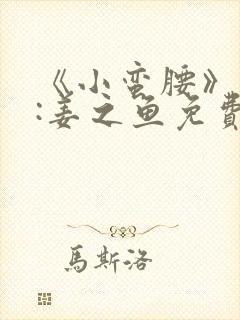 《小蛮腰》
:姜之鱼免費
馬斯洛